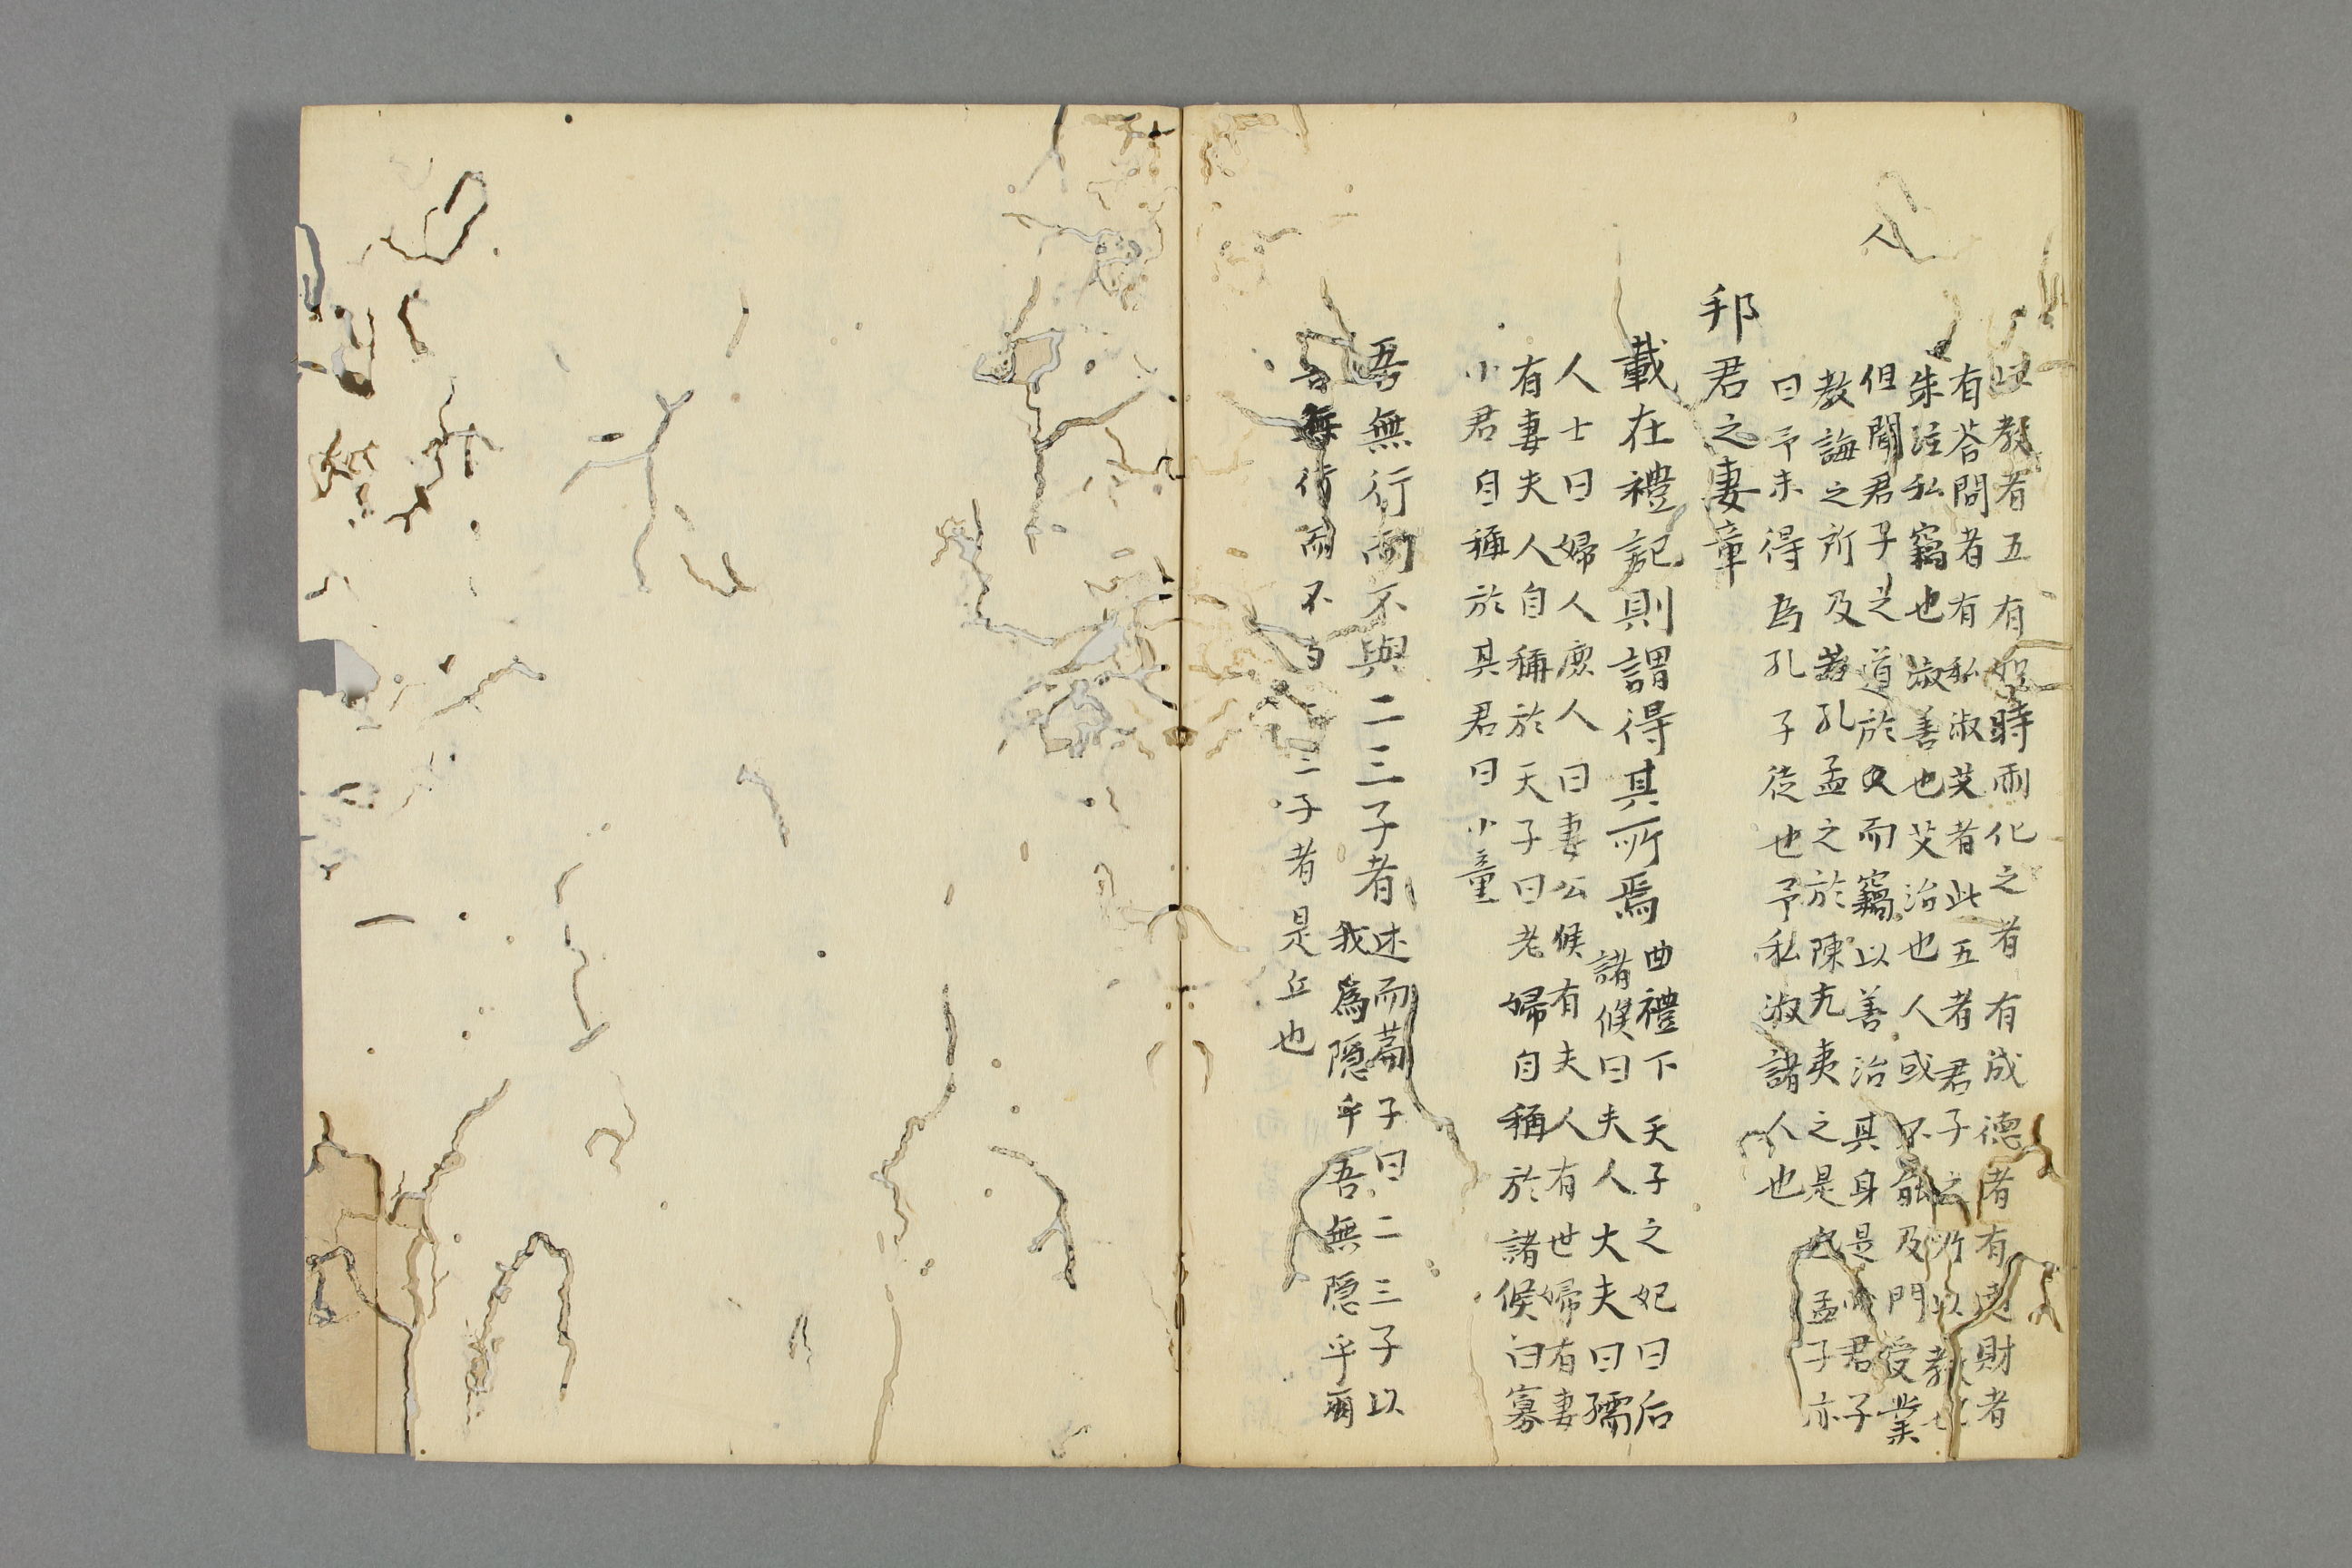 教者五有如時雨化之者有成德者有達財者
有荅問者有私淑艾者此五者君子之所以教也
朱注私竊也淑善也艾治也人或不能及門受業
但聞君子之道於人而竊以善治其身是亦君子
教誨之所及若孔孟之於陳亢夷之是也孟子亦
曰予未得爲孔子徒也予私淑諸人也
邦君之妻章
載在禮記則謂得其所焉曲禮下天子之妃曰后
諸候曰夫人大夫曰孺
人士曰婦人庶人曰妻公候有夫人有世婦有妻
有妻夫人自稱於天子曰老婦自稱於諸候曰寡
小君自稱於其君曰小童
吾無行而不與二三子者述而篇子曰二三子以
我爲隱乎吾無隱乎爾
吾無行而不与二三子者是丘也